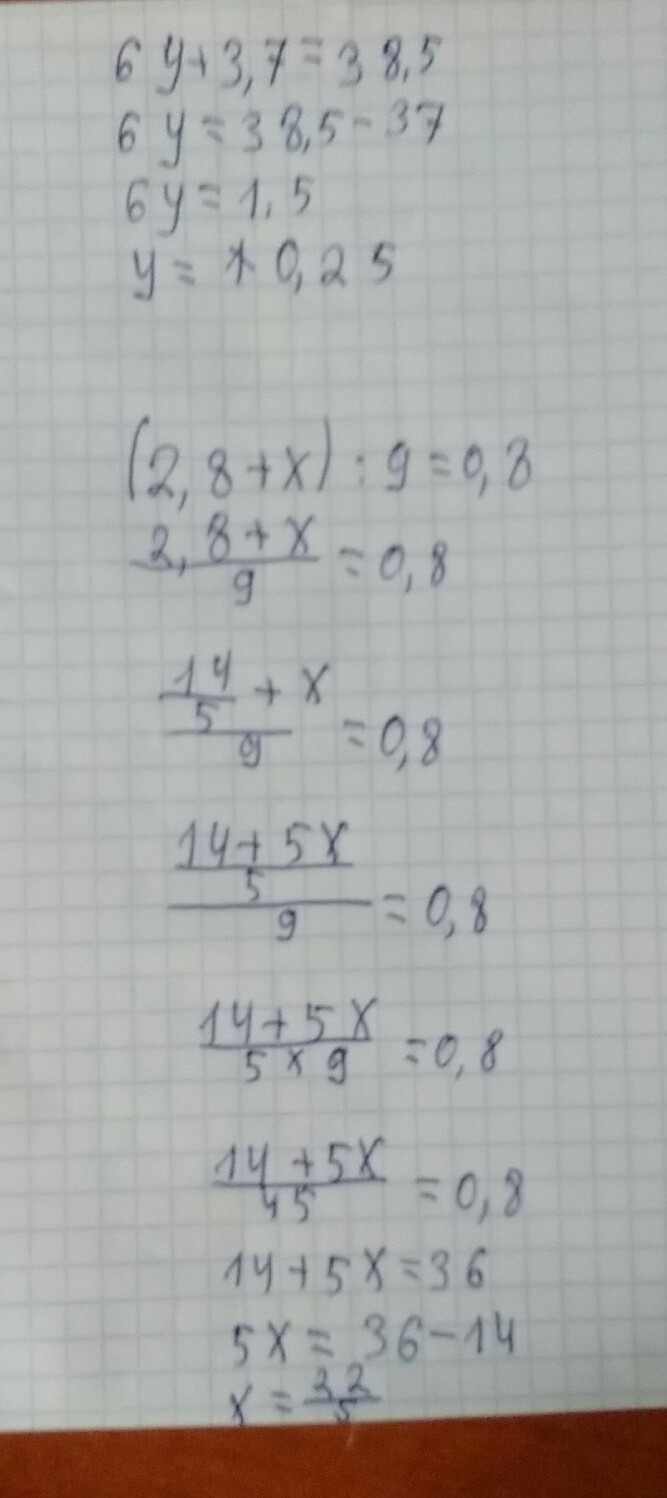 6y+3,7=38,5
6y=38,5-37
6y=1,5
y=0,25
(2,8+x):9=0,8
2,8+x
9
=0,8
14
5
+x
9
=0,8
14+5x
5
9
=0,8
14+5x
5×9
=0,8
14+5x
45
=0,8
14+5x=36
5x=36-14
x=22
5